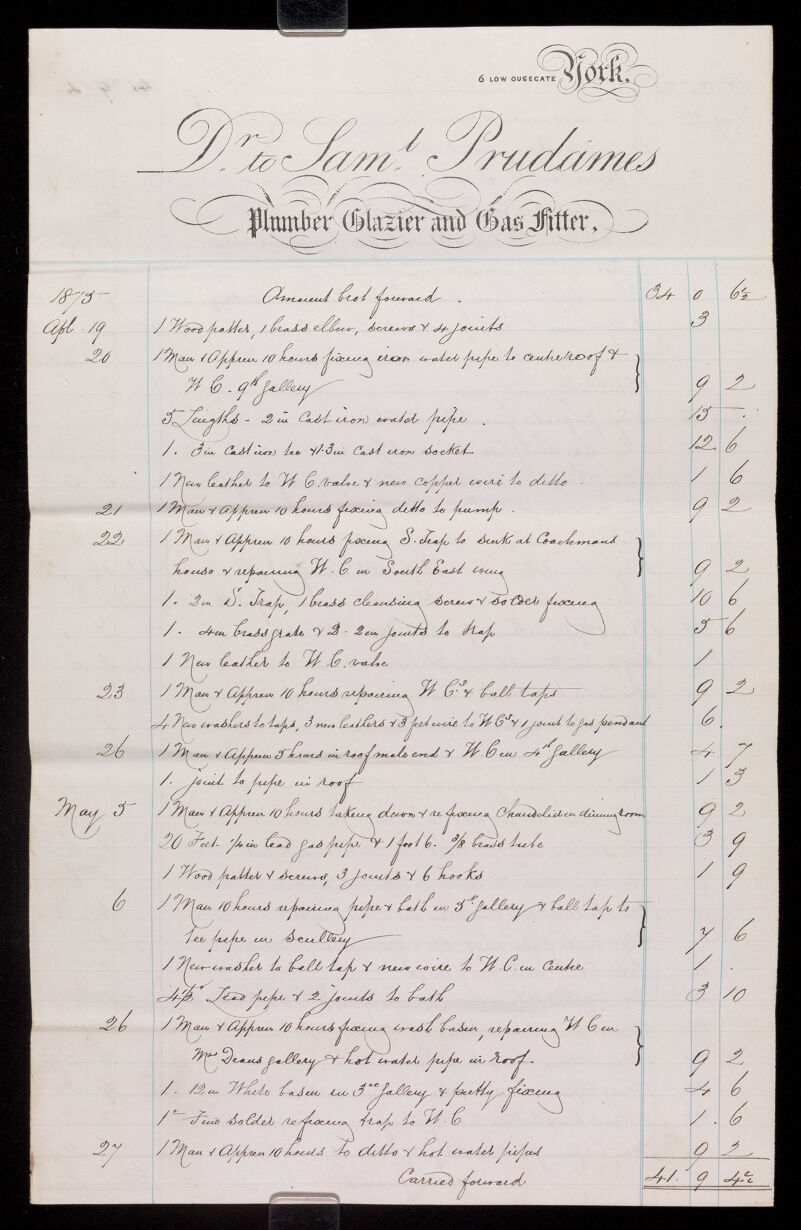 6 LOW OUSEGATE York.
Dr. to Saml. Prudames
Plumber Glazier and Gas Fitter,
1875 Amount brot forward . 34 0 6½
Apl. 19 1 Wood patter, 1 brass elbow, screws & 4 joints 3
20 1 Man & Appren 10 hours fixing iron water pipe to centre roof &
W C - 9th Gallery 9 2
5 Lengths - 2 in Cast iron water pipe . 15 -
1. 3in Cast iron tee & 1. 3in Cast iron socket 12 6
1 New leather to W C valve & new copper wire to ditto . 1 6
21 1 Man & Appren 10 hours fixing ditto to pump . 9 2
22 1 Man & Appren 10 hours fixing S. Trap to sink at Coachmans
house & repairing W. C in South East wing 9 2
1. 2in S. Trap, 1 brass cleansing screw & solder fixing 10 6
1. 4in brass grate & 2. 2in joints to trap 5 6
1 New leather to W C. valve 1
23 1 Man & Appren 10 hours repairing W Cs. & ball taps 9 2
4 New washers to taps, 3 new leathers & 3 feet wire to W Cs & 1 joint to gas pendant 6.
26 1 Man & Appren 5 hours in roof male end & W. C in 4th Gallery 4 7
1. joint to pipe in roof 1 3
May 5 1 Man & Appren 10 hours taking down & refixing Chandelier in dining room 9 2
20 Feet ¼ in lead gas pipe & 1 foot 6. 3/8 brass tube 3 9
1 Wood patter & screws, 3 joints & 6 hooks 1 9
6 1 Man 10 hours repairing pipe & bath in 5th Gallery & ball tap to
tee pipe in scullery 7 6
1 New washer to ball tap & new wire to W. C. in Centre 1 .
Lead pipe & 2 joints to bath 3 10
26 1 Man & Appren 10 hours fixing wash basin, repairing W C in
Mrs Deans gallery & hot water pipe in roof. 9 2
1. 12in White basin in 3rd Gallery & putty fixing 4 6
Fine solder refixing trap to W. C 1. 6
27 1 Man & Appren 10 hours to ditto & hot water pipes 9 2
Carried forward 41. 9 4½